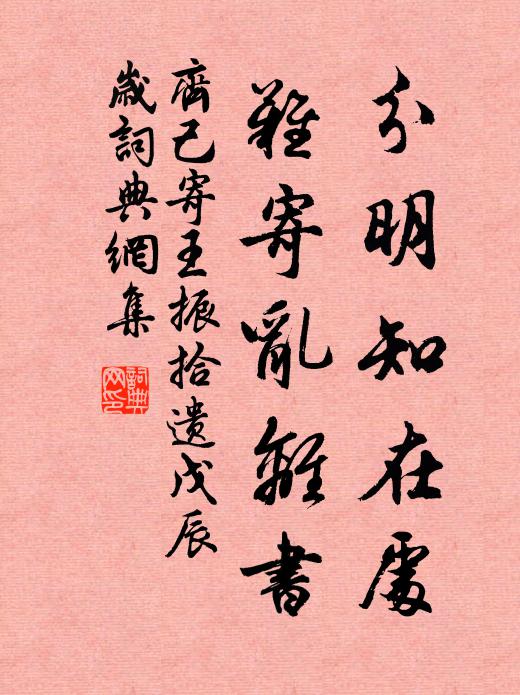 分明知在處
難寄亂離書
齊己寄王振拾遺戊辰
歲詞典網集
詞典網印